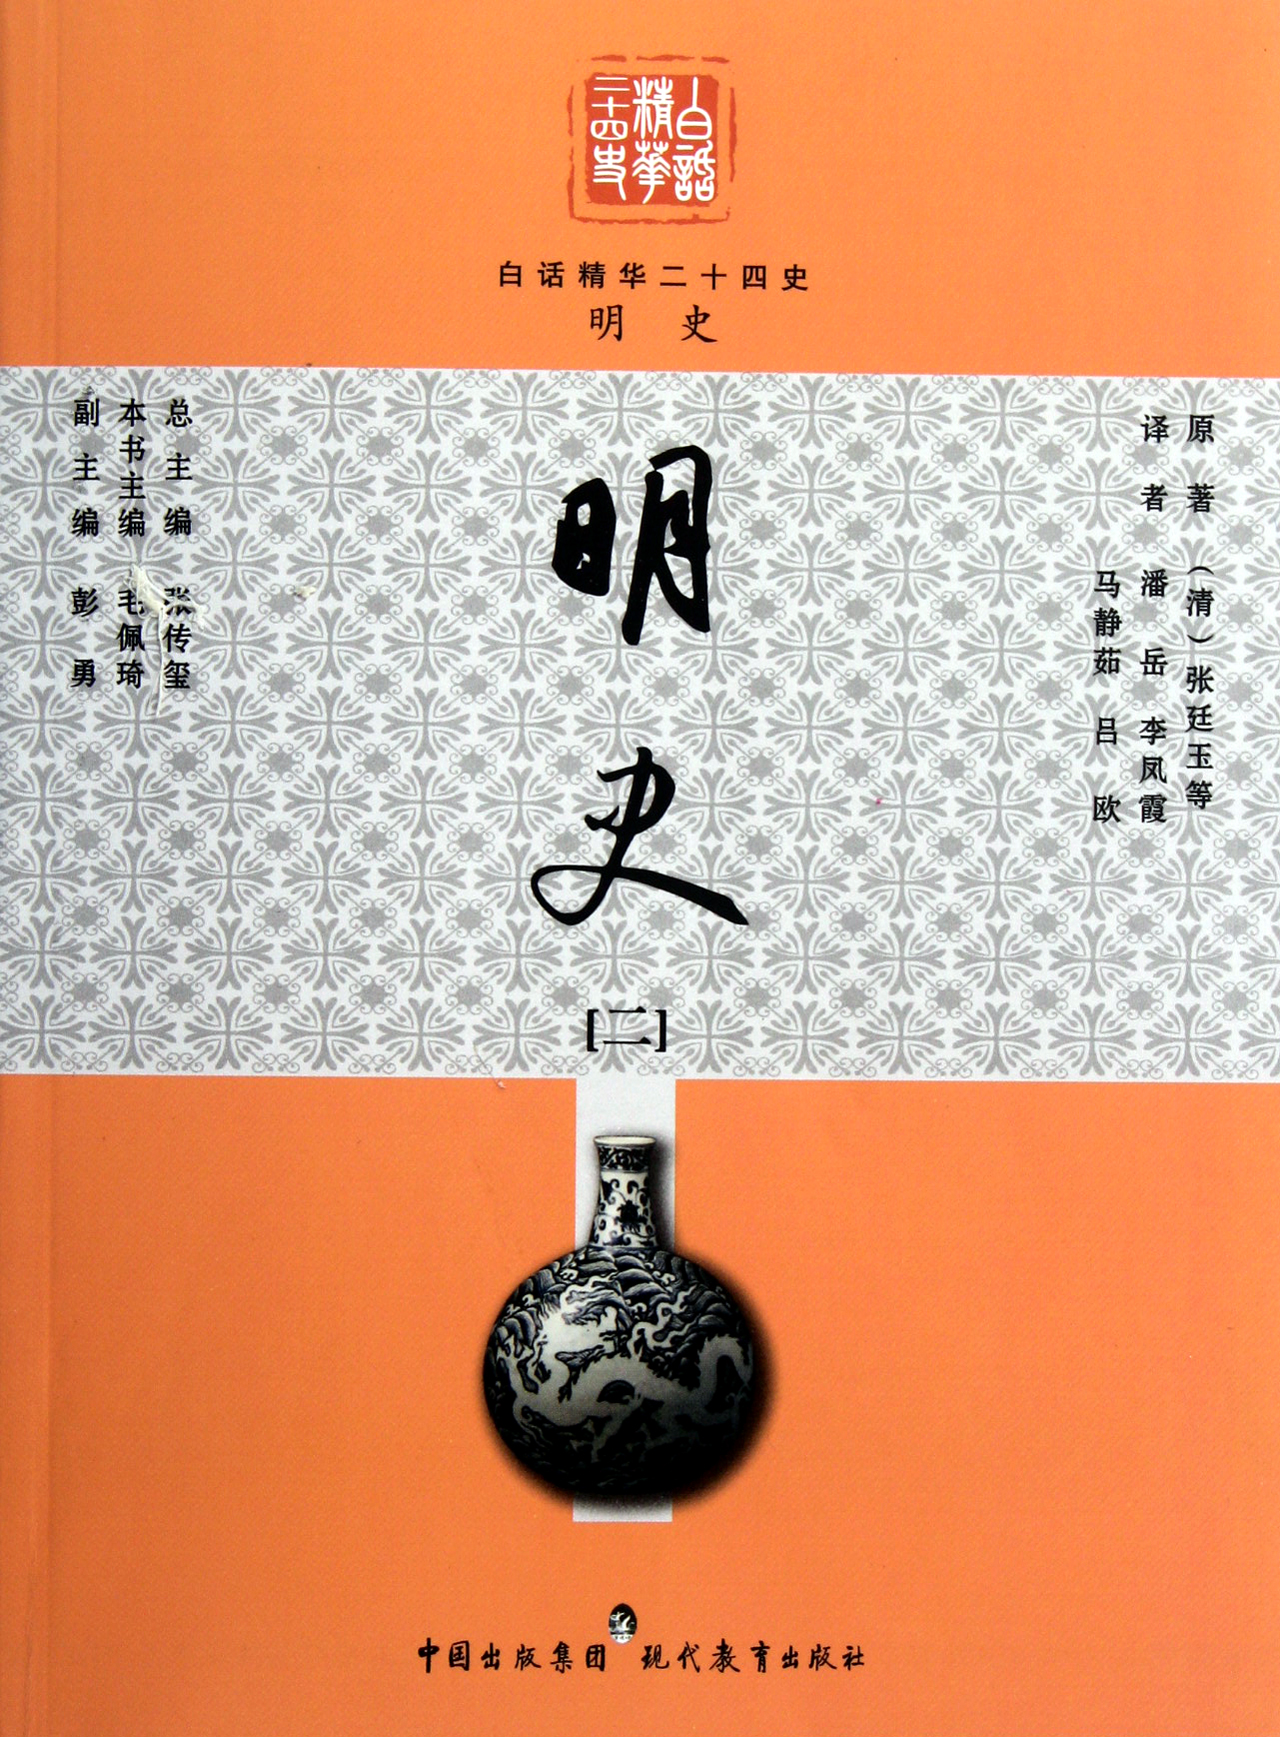 白話
精華
二十四史
白话精华二十四史
明 史
原 著 （清）张廷玉等
译 者 潘 岳 李凤霞
马静茹 吕 欧
明史
[二]
总 主 编 张传玺
本书主编 毛佩琦
副 主 编 彭 勇
中国出版集团 现代教育出版社